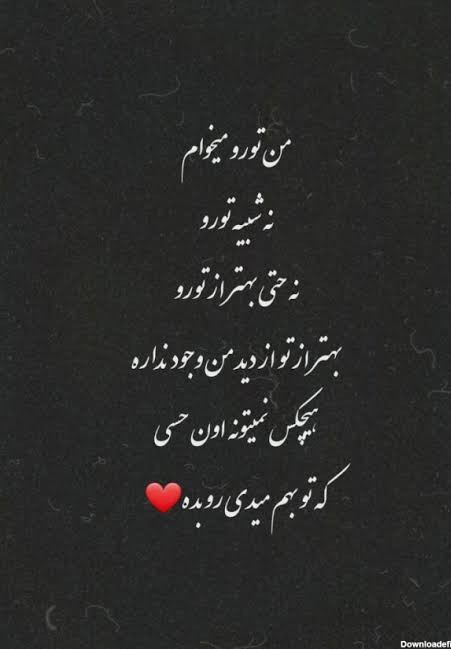 من تورو میخوام
نه شبیه تورو
نه حتی بهتر از تورو
بهتر از تو از دید من وجود نداره
هیچکس نمیتونه اون حسی
که تو بهم میدی رو بده❤️
Downloadefi